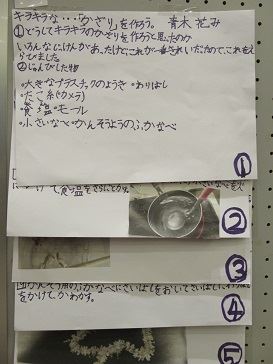 キラキラな・・・「かざり」を作ろう。 青木 花み
①どうしてキラキラのかざりを作ろうと思ったのか
いろんなじっけんがあったけどこれが一番きれいだったので、これをえ
らびました。
②じゅんびした物
・大きなプラスチックのようき ・わりばし
・たこ糸(カメラ)
・食塩 ・モール
・小さいなべ・かんそうようのふかなべ
①
食塩をさらにとかす。
②
③
のふかなべにさいばしをおいてさいばしに
をかけて、かわかす。
④
⑤